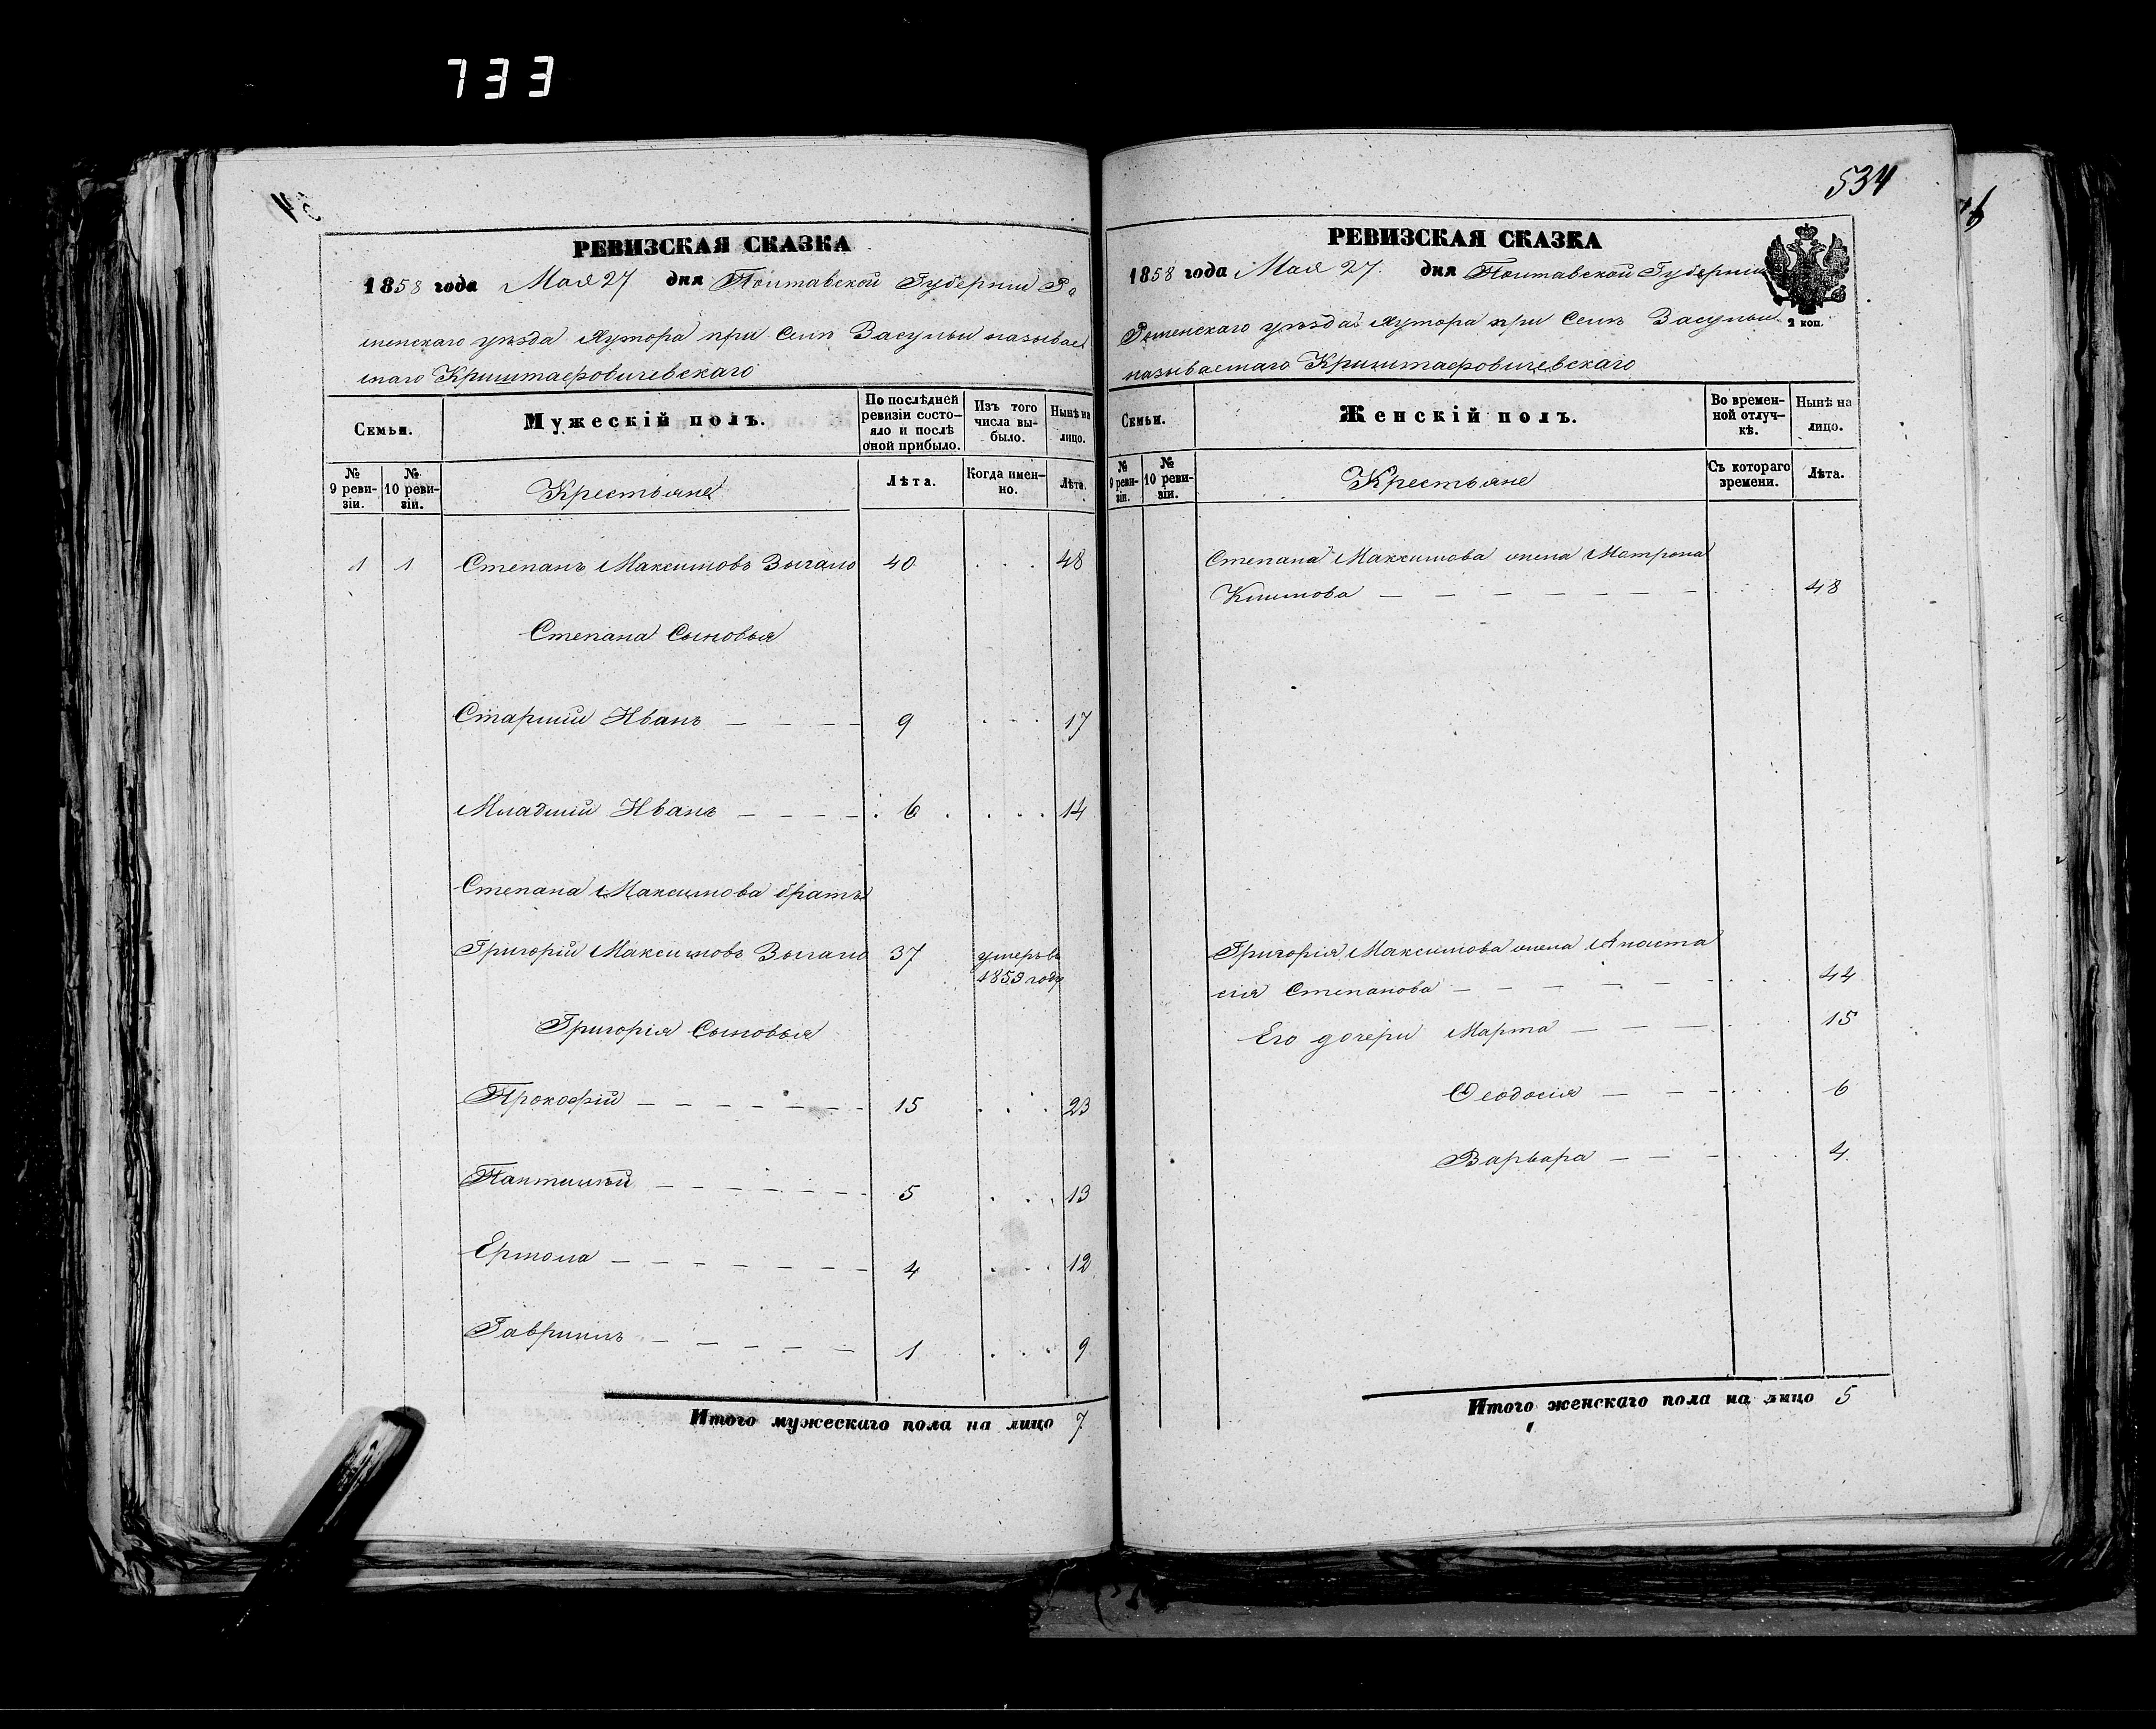 733
534
РЕВИЗСКАЯ СКАЗКА
1858 года Мая 27 дня Полтавской Губернии Ро
менскаго уѣзда Хутора при Селѣ Засульи называе
маго Криштафовичевскаго
Семьи.
Мужескій полъ.
По послѣдней ревизіи состо-
яло и послѣ оной прибыло.
Изъ того числа вы-
было.
Нынѣ на лицо.
№ 9 реви-
зіи.
№ 10 реви-
зіи.
Крестьяне
Лѣта.
Когда имен-
но.
Лѣта.
1 1 Степанъ Максимовъ Зыгало 40 48
Степана Сыновья
Старшій Иванъ 9 17
Младшій Иванъ 6 14
Степана Максимова братъ
Григорій Максимовъ Зыгало 37 умеръ въ
1853 году
Григорія Сыновья
Прокофій 15 23
Пантилѣй 5 13
Ермола 4 12
Гавріилъ 1 9
Итого мужескаго пола на лицо 7
РЕВИЗСКАЯ СКАЗКА
1858 года Мая 27. дня Полтавской Губерніи
2 коп.
Роменскаго уѣзда Хутора при Селѣ Засульи
называемаго Криштафовичевскаго
Семьи.
Женскій полъ.
Во времен-
ной отлуч-
кѣ.
Нынѣ на лицо.
№ 9 реви-
зіи.
№ 10 реви-
зіи.
Крестьяне
Съ котораго времени.
Лѣта.
Степана Максимова жена Мотрона
Климова 48
Григорія Максимова жена Анаста
сія Степанова 44
Его дочери Марта 15
Ѳеодосія 6
Варвара 4
Итого женскаго пола на лицо 5